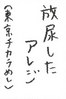 放尿した
アレジ
（東京チカラめし）